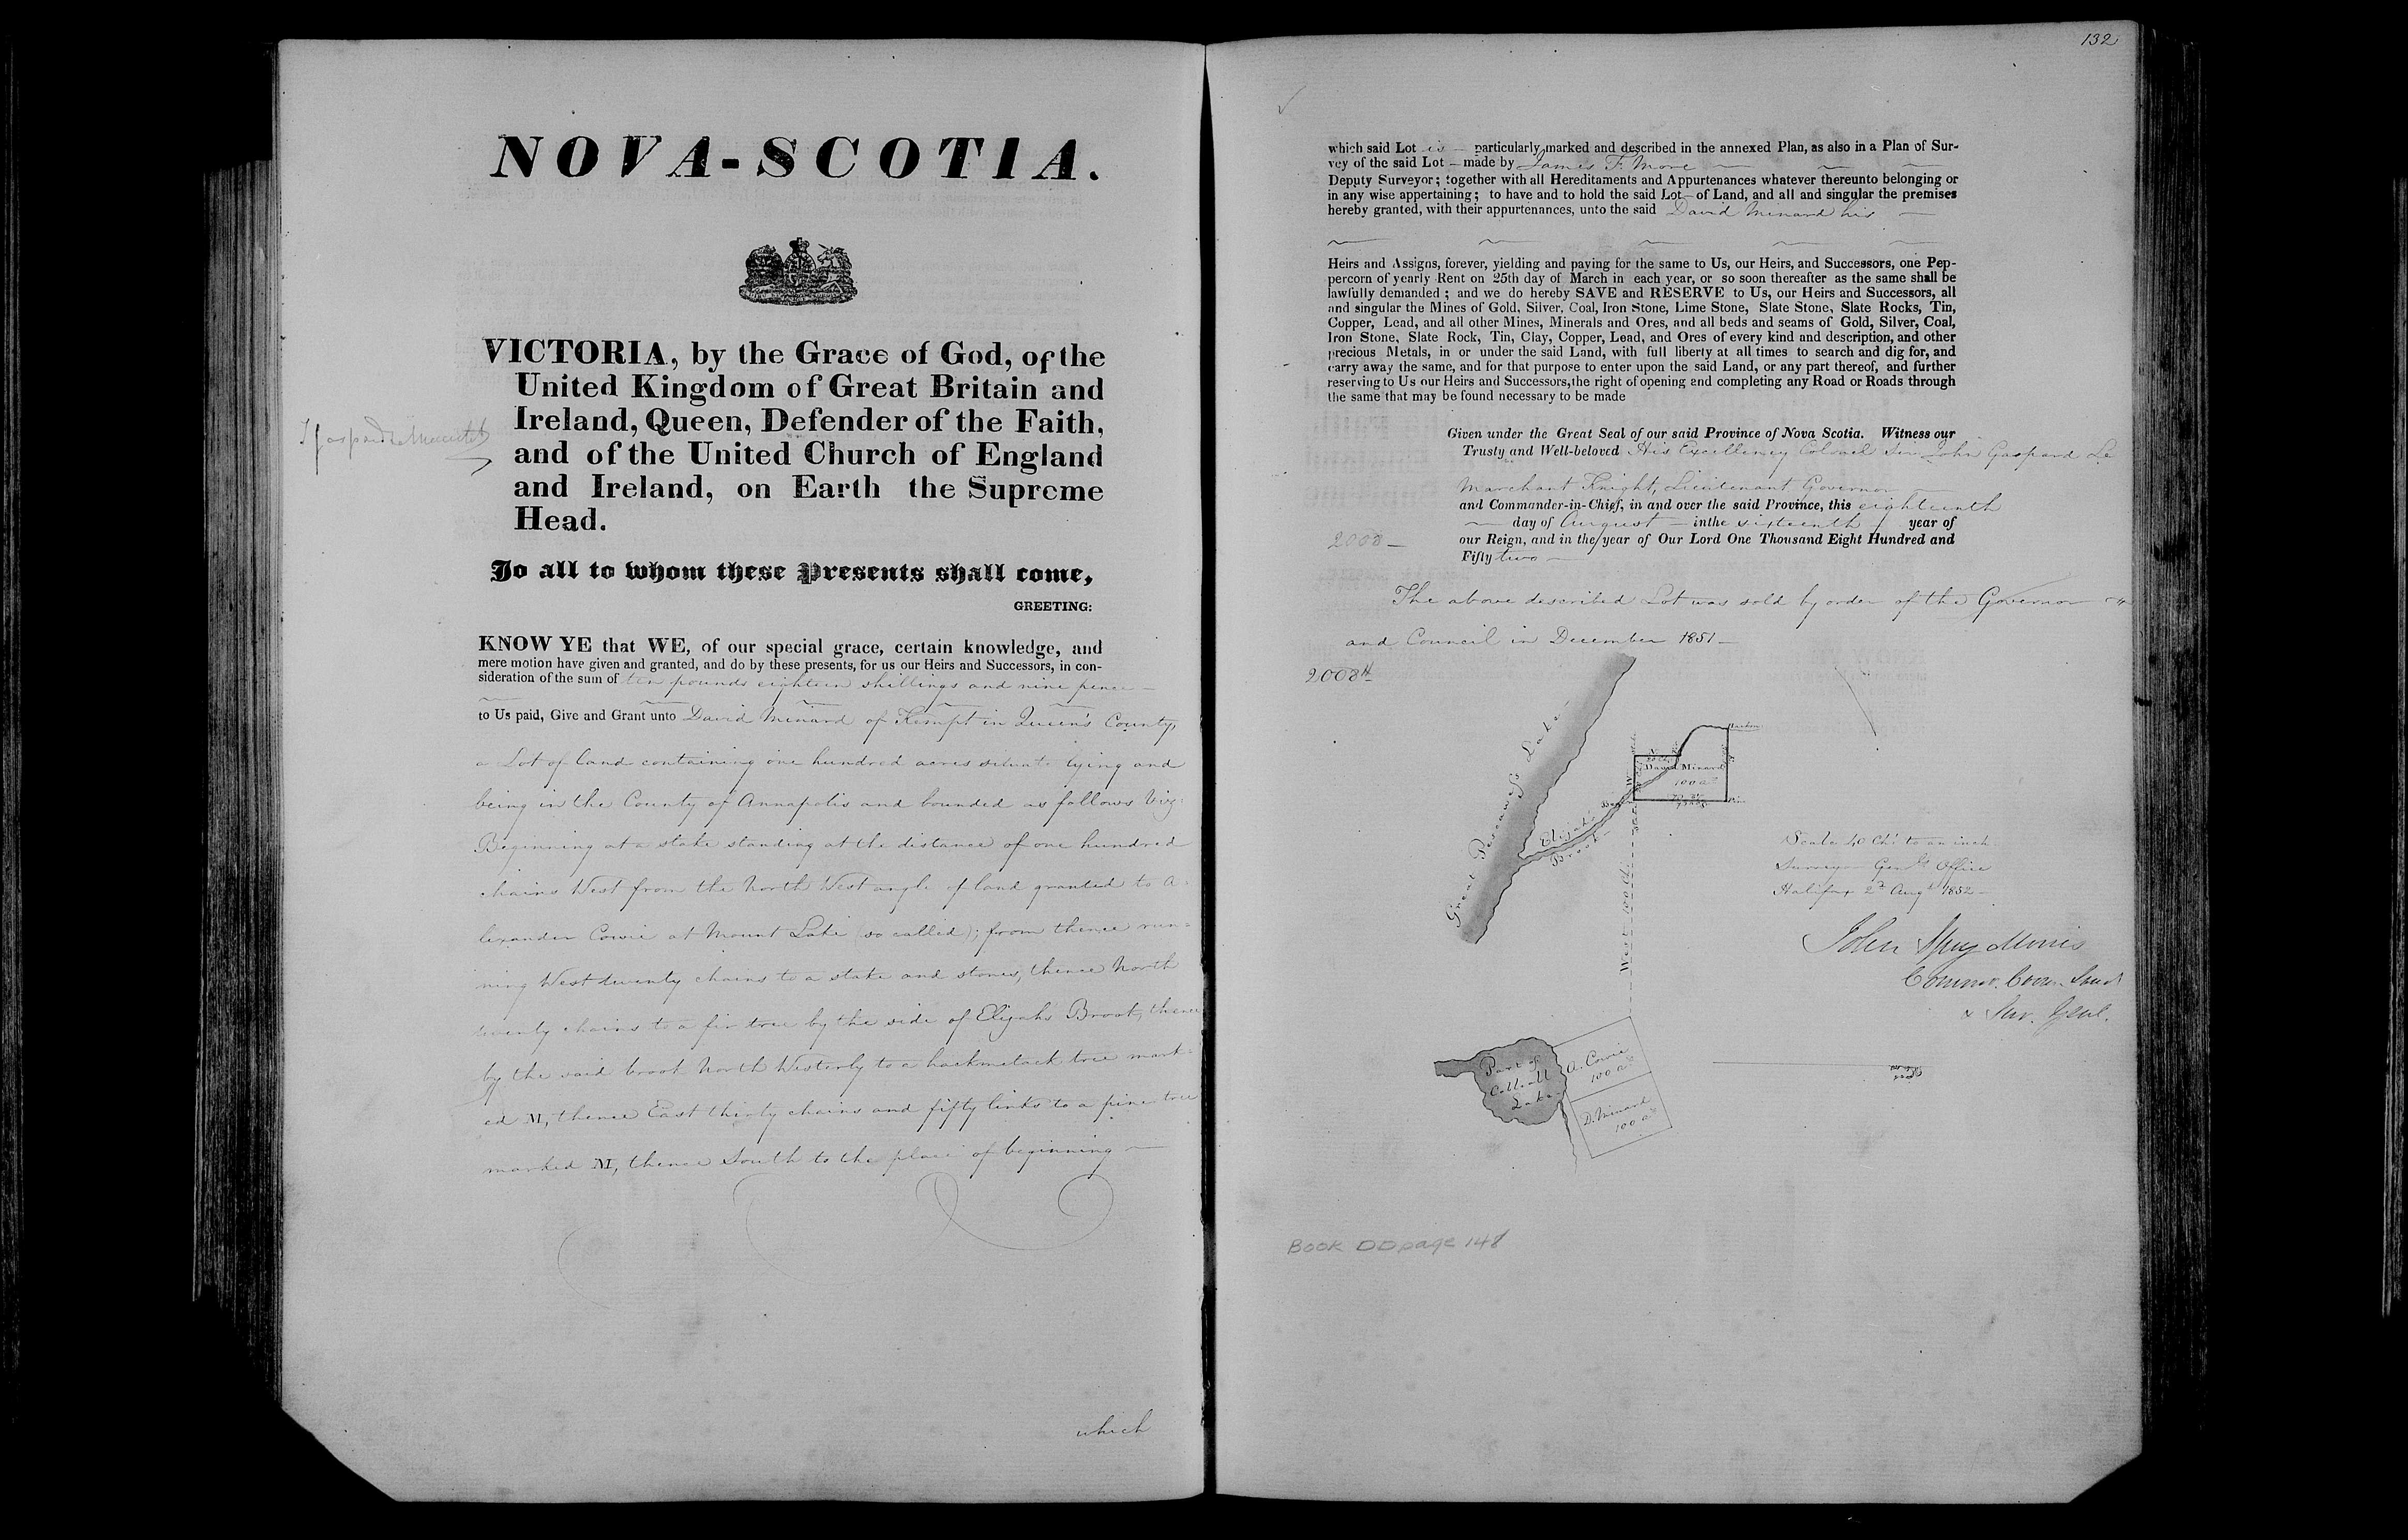 NOVA-SCOTIA.
VICTORIA, by the Grace of God, of the
United Kingdom of Great Britain and
Ireland, Queen, Defender of the Faith,
and of the United Church of England
and Ireland, on Earth the Supreme
Head.
To all to whom these Presents shall come,
GREETING:
KNOW YE that WE, of our special grace, certain knowledge, and
mere motion have given and granted, and do by these presents, for us our Heirs and Successors, in con-
sideration of the sum of ten pounds eighteen shillings and nine pence
to Us paid, Give and Grant unto David Minard of Kempt in Queen's County,
a Lot of land containing one hundred acres situate lying and
being in the County of Annapolis and bounded as follows Viz:
Beginning at a stake standing at the distance of one hundred
chains West from the North West angle of land granted to A-
lexander Cowie at Mount Lake (so called); from thence run=
ning West twenty chains to a stake and stones, thence North
twenty chains to a fir tree by the side of Elijahs Brook, thence
by the said brook North Westerly to a hackmetack tree mark-
ed M, thence East thirty chains and fifty links to a pine tree
marked M, thence South to the place of beginning
which
132
which said Lot is particularly marked and described in the annexed Plan, as also in a Plan of Sur-
vey of the said Lot made by James F. More
Deputy Surveyor; together with all Hereditaments and Appurtenances whatever thereunto belonging or
in any wise appertaining; to have and to hold the said Lot of Land, and all and singular the premises
hereby granted, with their appurtenances, unto the said David Minard his
Heirs and Assigns, forever, yielding and paying for the same to Us, our Heirs, and Successors, one Pep-
percorn of yearly Rent on 25th day of March in each year, or so soon thereafter as the same shall be
lawfully demanded; and we do hereby SAVE and RESERVE to Us, our Heirs and Successors, all
and singular the Mines of Gold, Silver, Coal, Iron Stone, Lime Stone, Slate Stone, Slate Rocks, Tin,
Copper, Lead, and all other Mines, Minerals and Ores, and all beds and seams of Gold, Silver, Coal,
Iron Stone, Slate Rock, Tin, Clay, Copper, Lead, and Ores of every kind and description, and other
precious Metals, in or under the said Land, with full liberty at all times to search and dig for, and
carry away the same, and for that purpose to enter upon the said Land, or any part thereof, and further
reserving to Us our Heirs and Successors, the right of opening and completing any Road or Roads through
the same that may be found necessary to be made
Given under the Great Seal of our said Province of Nova Scotia. Witness our
Trusty and Well-beloved His Excellency Colonel Sir John Gaspard Le
Marchant Knight, Lieutenant Governor
and Commander-in-Chief, in and over the said Province, this eighteenth
day of August in the sixteenth year of
2008
our Reign, and in the year of Our Lord One Thousand Eight Hundred and
Fifty two
The above described Lot was sold by order of the Governor
and Council in December 1851
2008
Great Lake
David Minard
100 a
Elijahs
Brook
West 100 Chs
Scale 40 Chs to an inch
Surveyor Genls Office
Halifax 2d Augt 1852
John Spry Morris
Commr. Crown Lands
& Sur. Genl.
Part of
Lake
A. Cowie
100 a
D. Minard
100 a
BOOK DD page 148